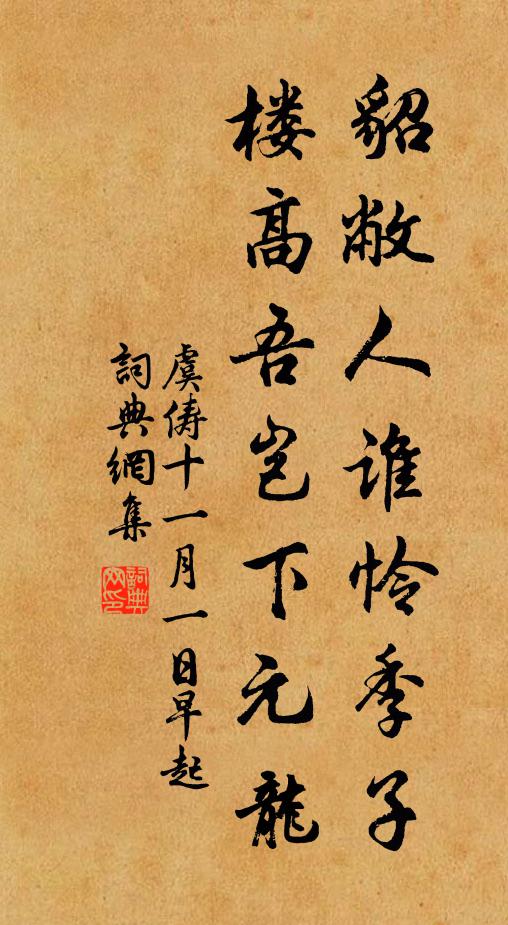 貂敝人谁怜季子
楼高吾岂下元龍
虞俦十一月一日早起
詞典網集
詞典网印